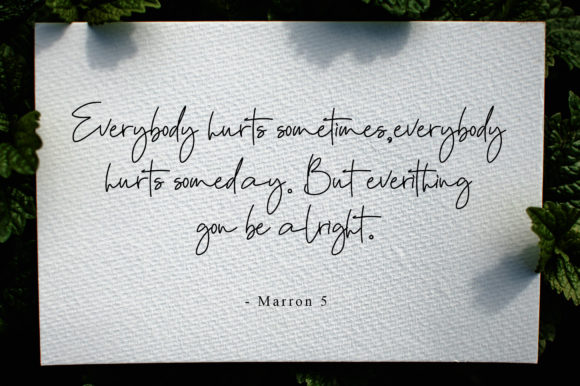 Everybody hurts sometimes,everybody
hurts someday. But everithing
gon be alright.
- Marron 5